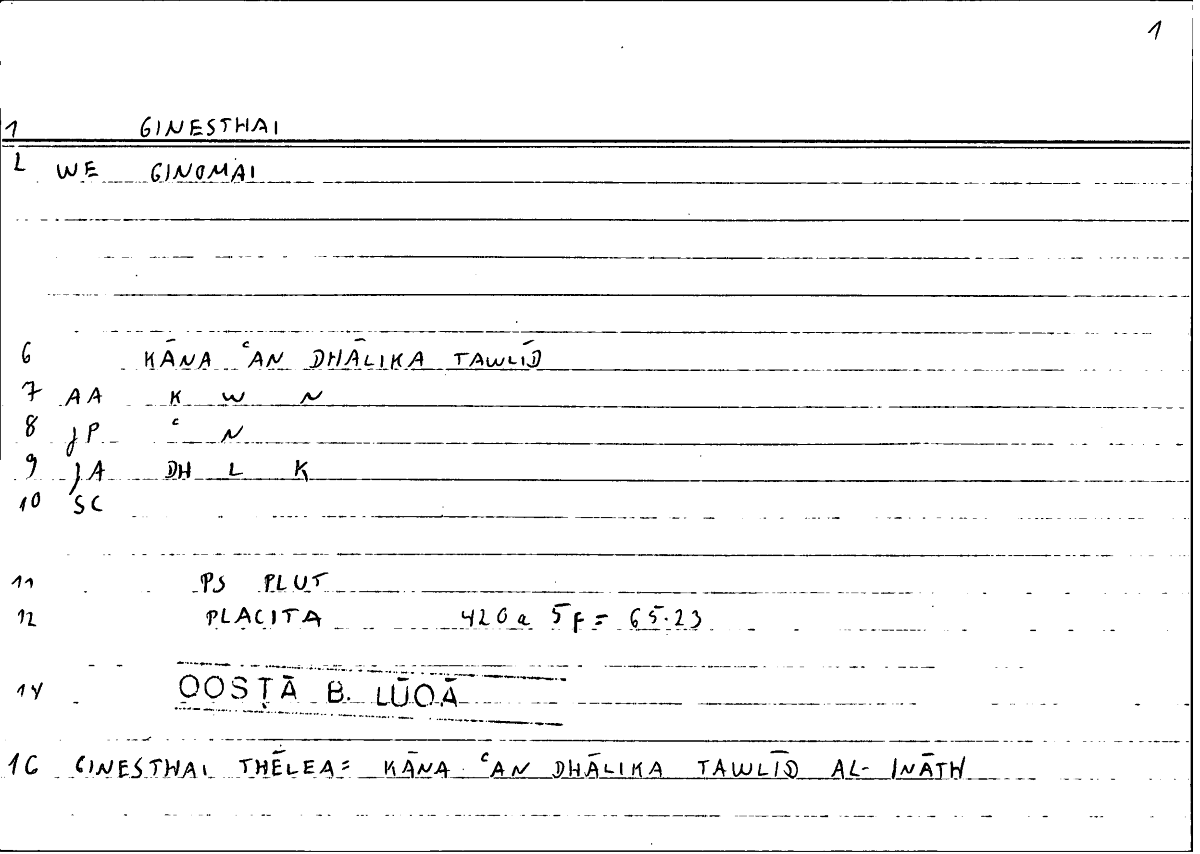 1
1 GINESTHAI
2 WE GINOMAI
6 KĀNA ʿAN DHĀLIKA TAWLĪD
7 AA K W N
8 JP ʿ N
9 JA DH L K
10 SC
11 PS PLUT
12 PLACITA 420a 5f = 65.23
14 QOSṬĀ B. LŪQĀ
16 GINESTHAI THĒLEA = KĀNA ʿAN DHĀLIKA TAWLĪD AL-INĀTH